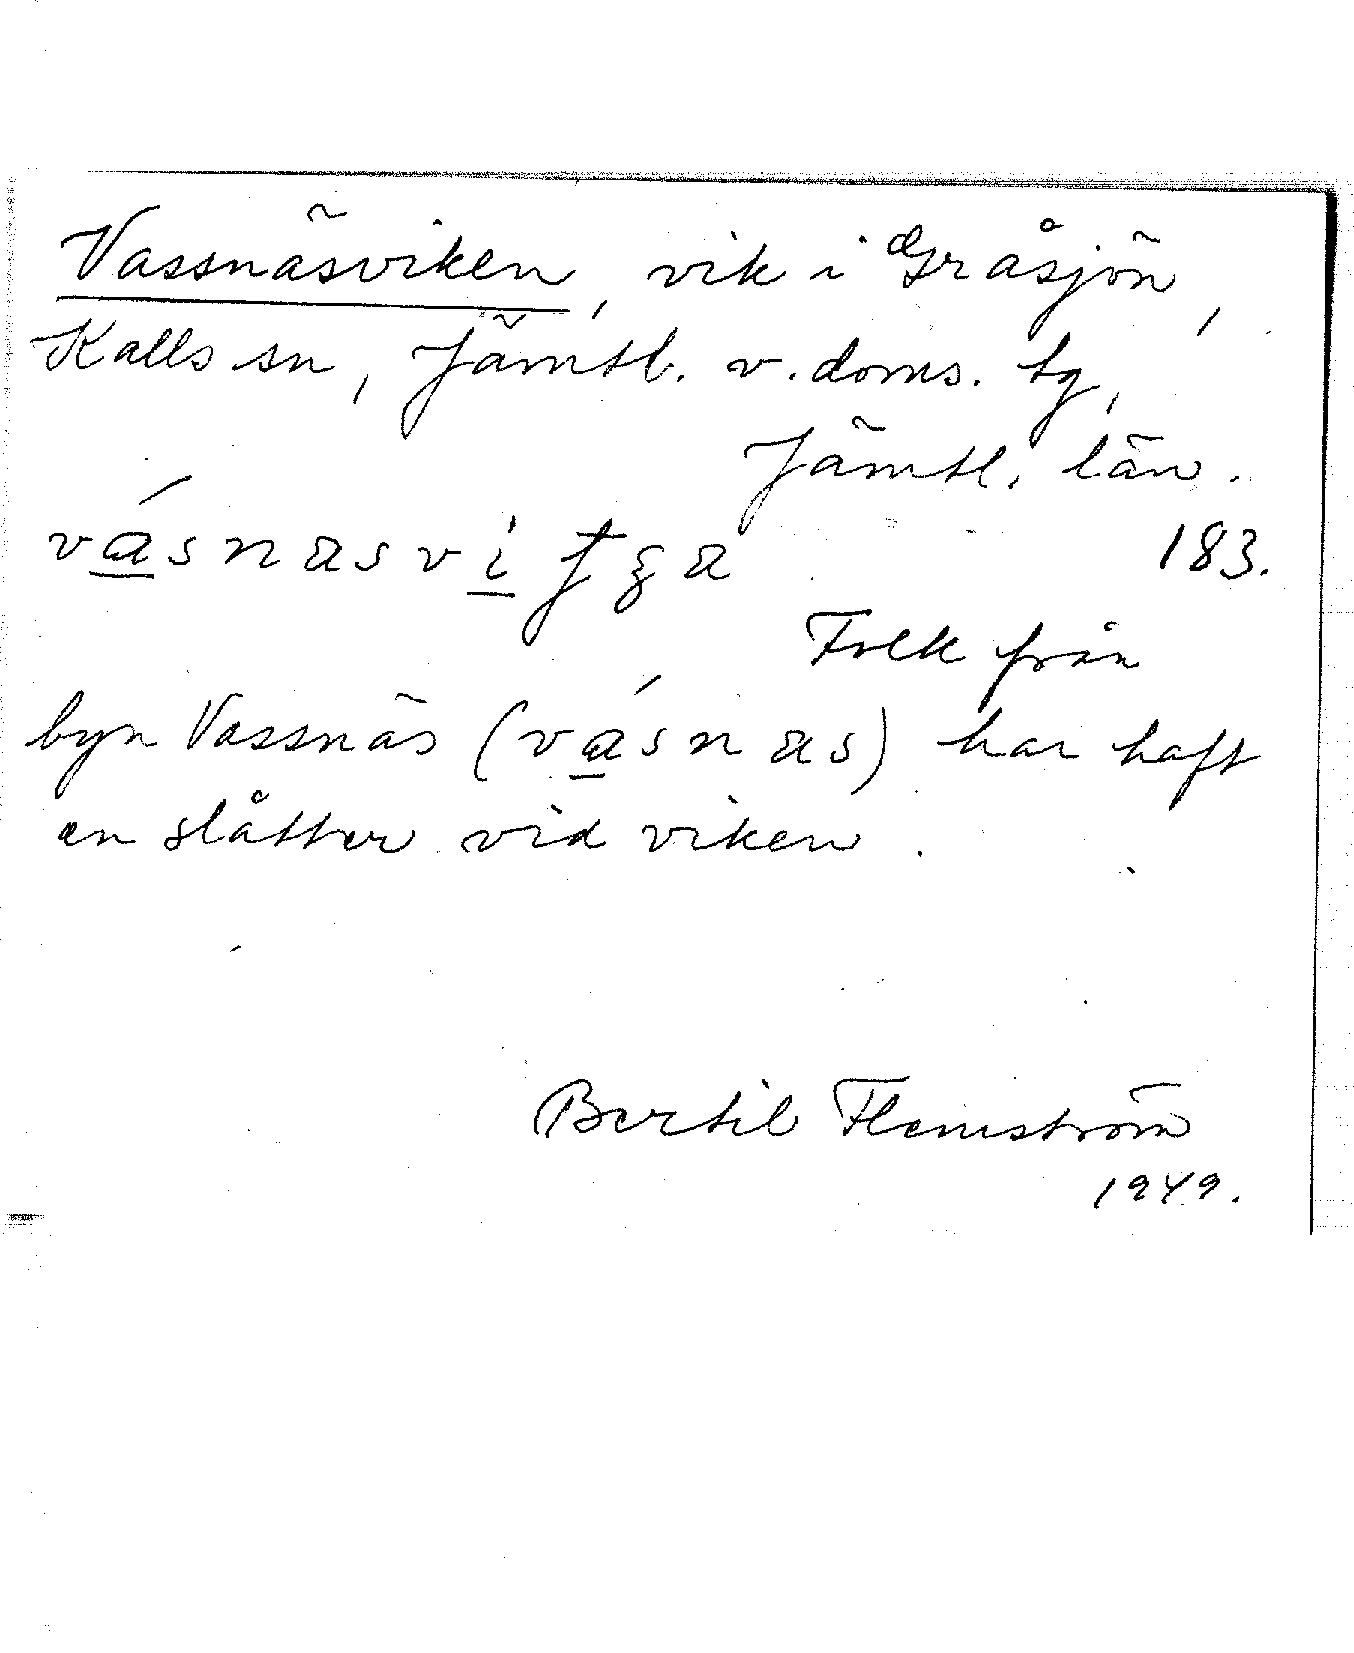 Vassnäsviken, vik i Gråsjön,
Kalls sn, Jämtl. v. doms. tg,
Jämtl. län.
vásnasviʄʒa 183.
Folk från
byn Vassnäs (vásnas) har haft
en slåtter vid viken.
Bertil Flemström
1949.